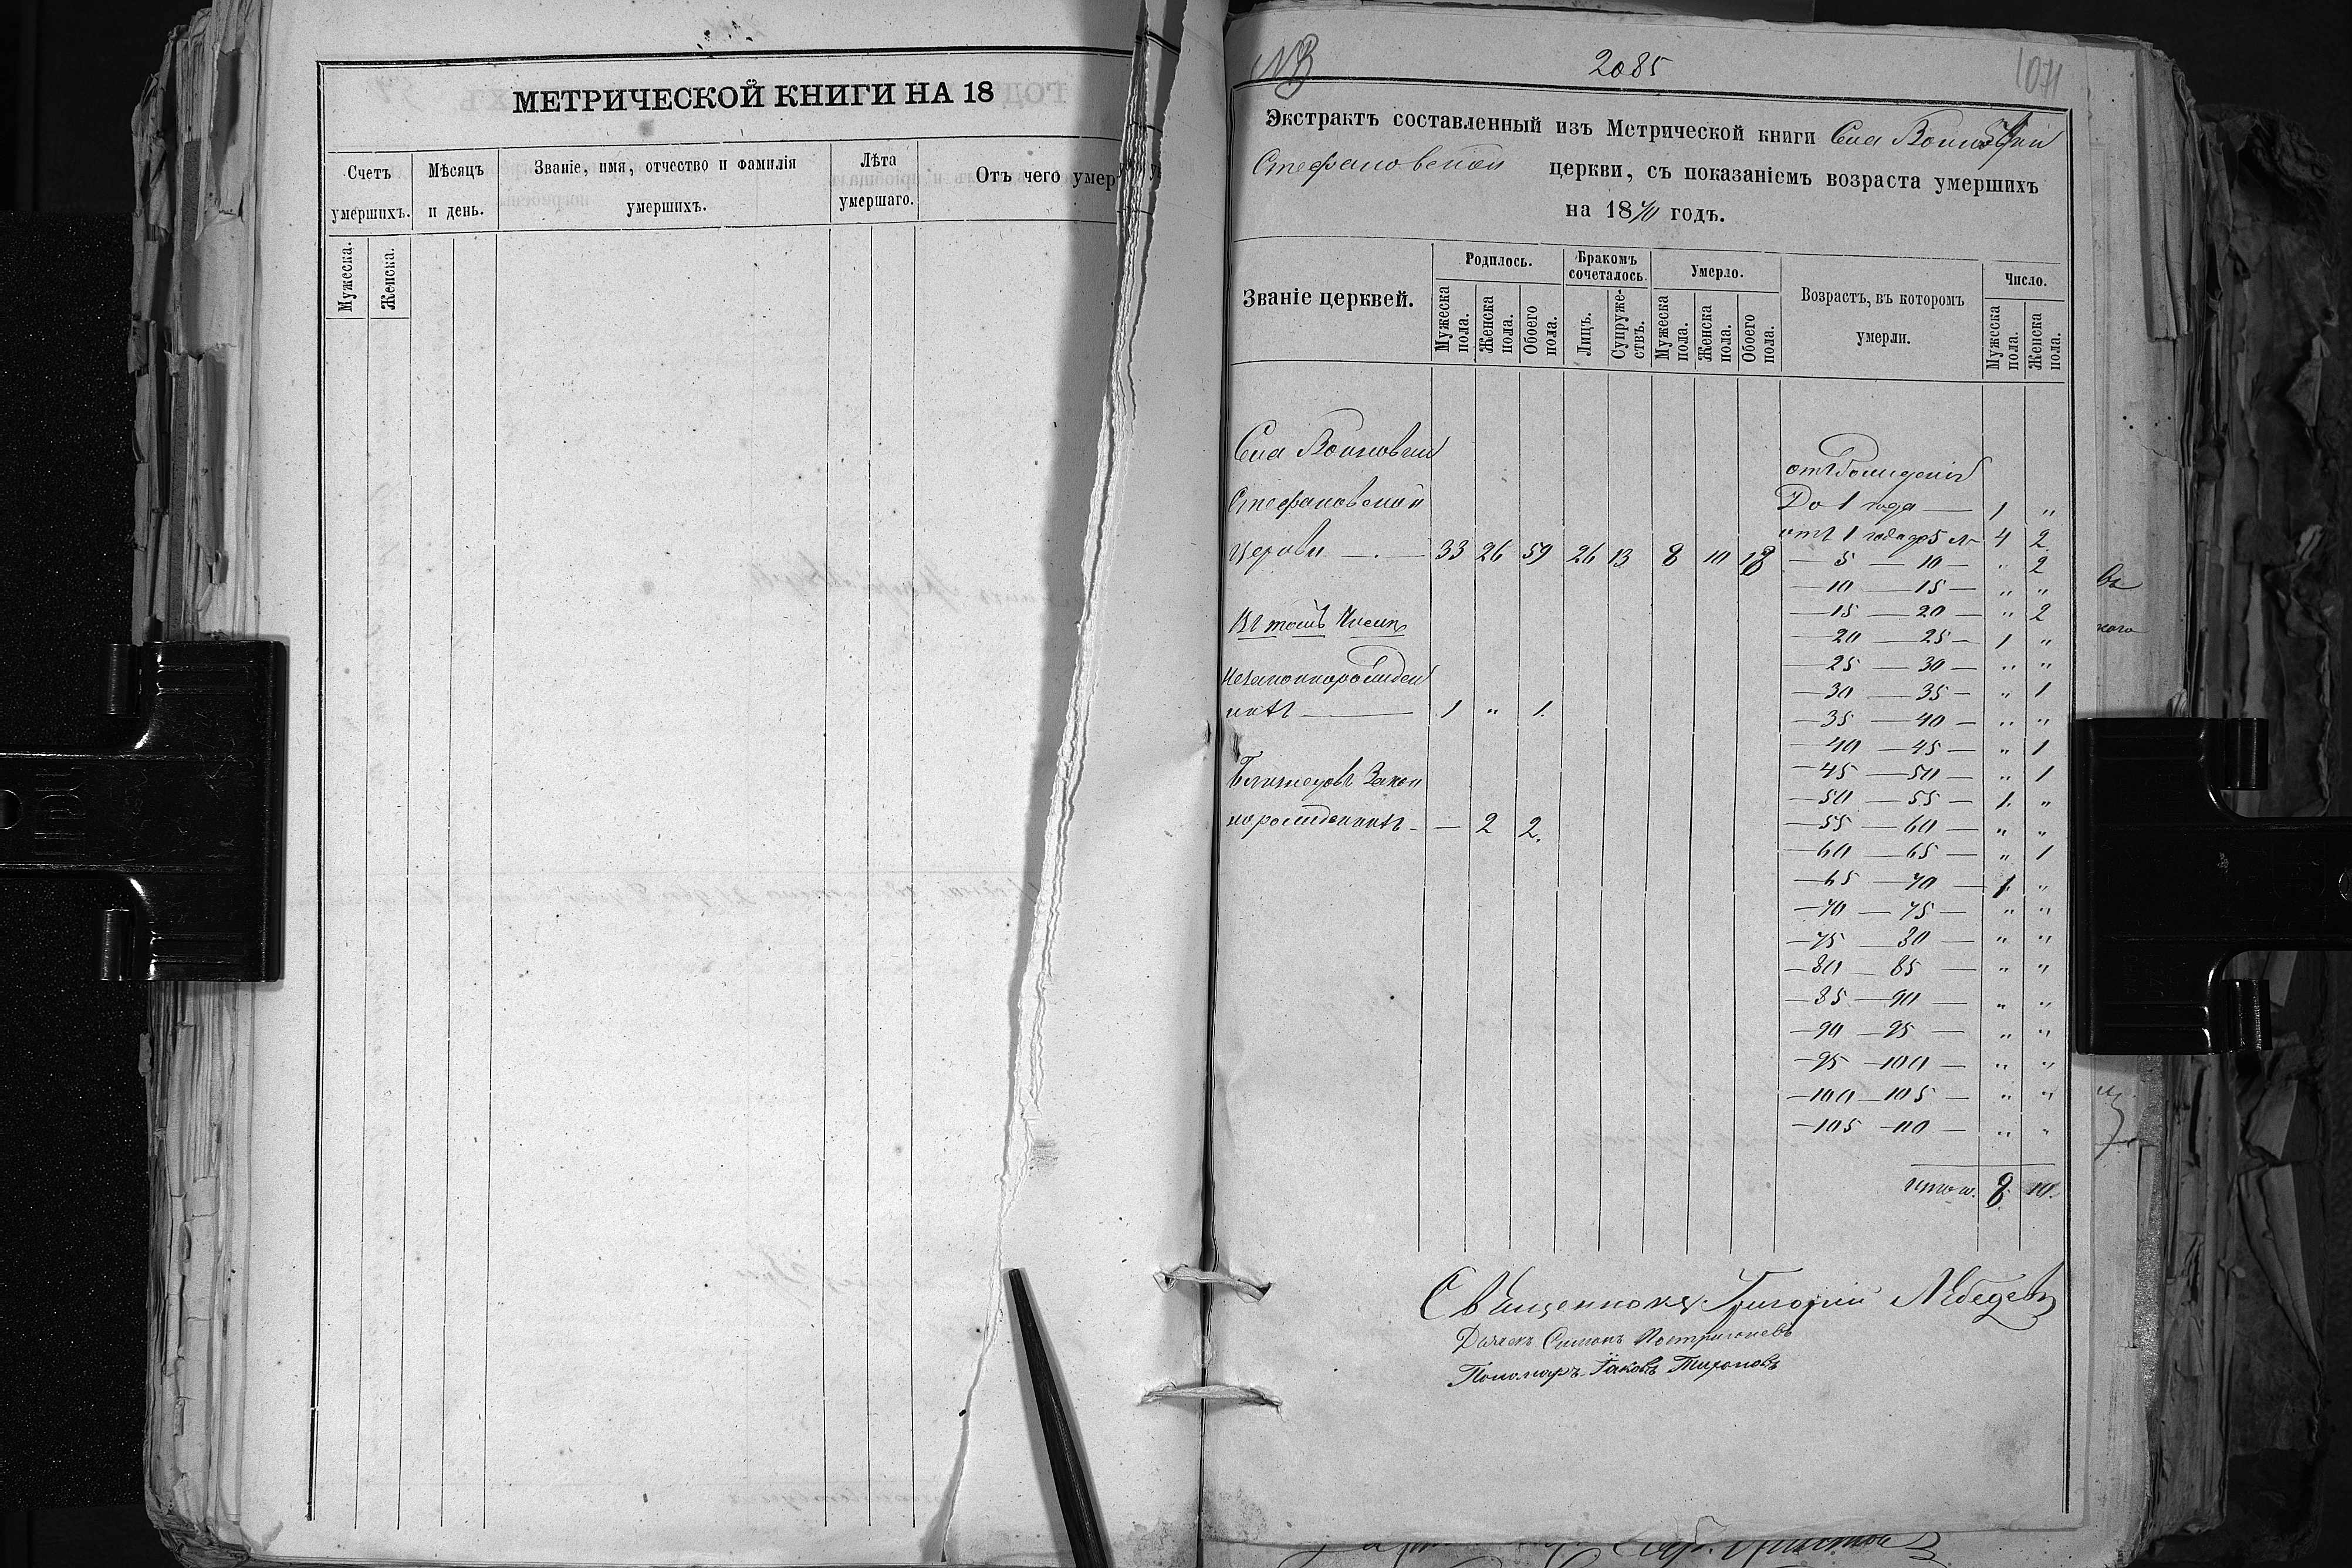 МЕТРИЧЕСКОЙ КНИГИ НА 18
Счетъ умершихъ.
Мѣсяцъ и день.
Званіе, имя, отчество и фамилія умершихъ.
Лѣта умершаго.
Отъ чего умер
Мужеска.
Женска.
NB
2085
1071
Экстрактъ составленный изъ Метрической книги Села
Стефановской церкви, съ показаніемъ возраста умершихъ
на 1870 годъ.
Званіе церквей.
Родилось.
Бракомъ сочеталось.
Умерло.
Возрастъ, въ которомъ умерли.
Число.
Мужеска пола.
Женска пола.
Обоего пола.
Лицъ.
Супружествъ.
Мужеска пола.
Женска пола.
Обоего пола.
Мужеска пола.
Женска пола.
Села
Стефановской
Церкви — . — 33 26 59 26 13 8 10 18
Въ томъ Числѣ
незаконнорожден
ныхъ — 1 „ 1.
Близнецовъ Закон
норожденныхъ - — 2 2.
отъ Рожденія
До 1 года — 1 „
отъ 1 года до 5 л— 4 2
— 5 — 10 — „ 2
— 10 — 15 — „ „
— 15 — 20 — „ 2
— 20 — 25 — 1 „
— 25 — 30 — „ „
— 30 — 35 — „ 1
— 35 — 40 — „ „
— 40 — 45 — „ 1
— 45 — 50 — „ 1
— 50 — 55 — 1. „
— 55 — 60 — „ „
— 60 — 65 — „ 1
— 65 — 70 — 1. „
— 70 — 75 — „ „
— 75 — 80 — „ „
— 80 — 85 — „ „
— 85 — 90 — „ „
— 90 — 95 — „ „
— 95 — 100 — „ „
— 100 — 105 — „ „
— 105 — 110 — „ „
итого. 8. 10.
Священникъ Григорій Лебедевъ
Дьячекъ Симонъ
Пономарь Іаковъ Тихоновъ